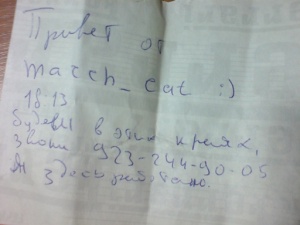 Привет от
march_cat :)
18:13
Будешь в этих краях,
звони 923-244-90-05
Я здесь работаю.